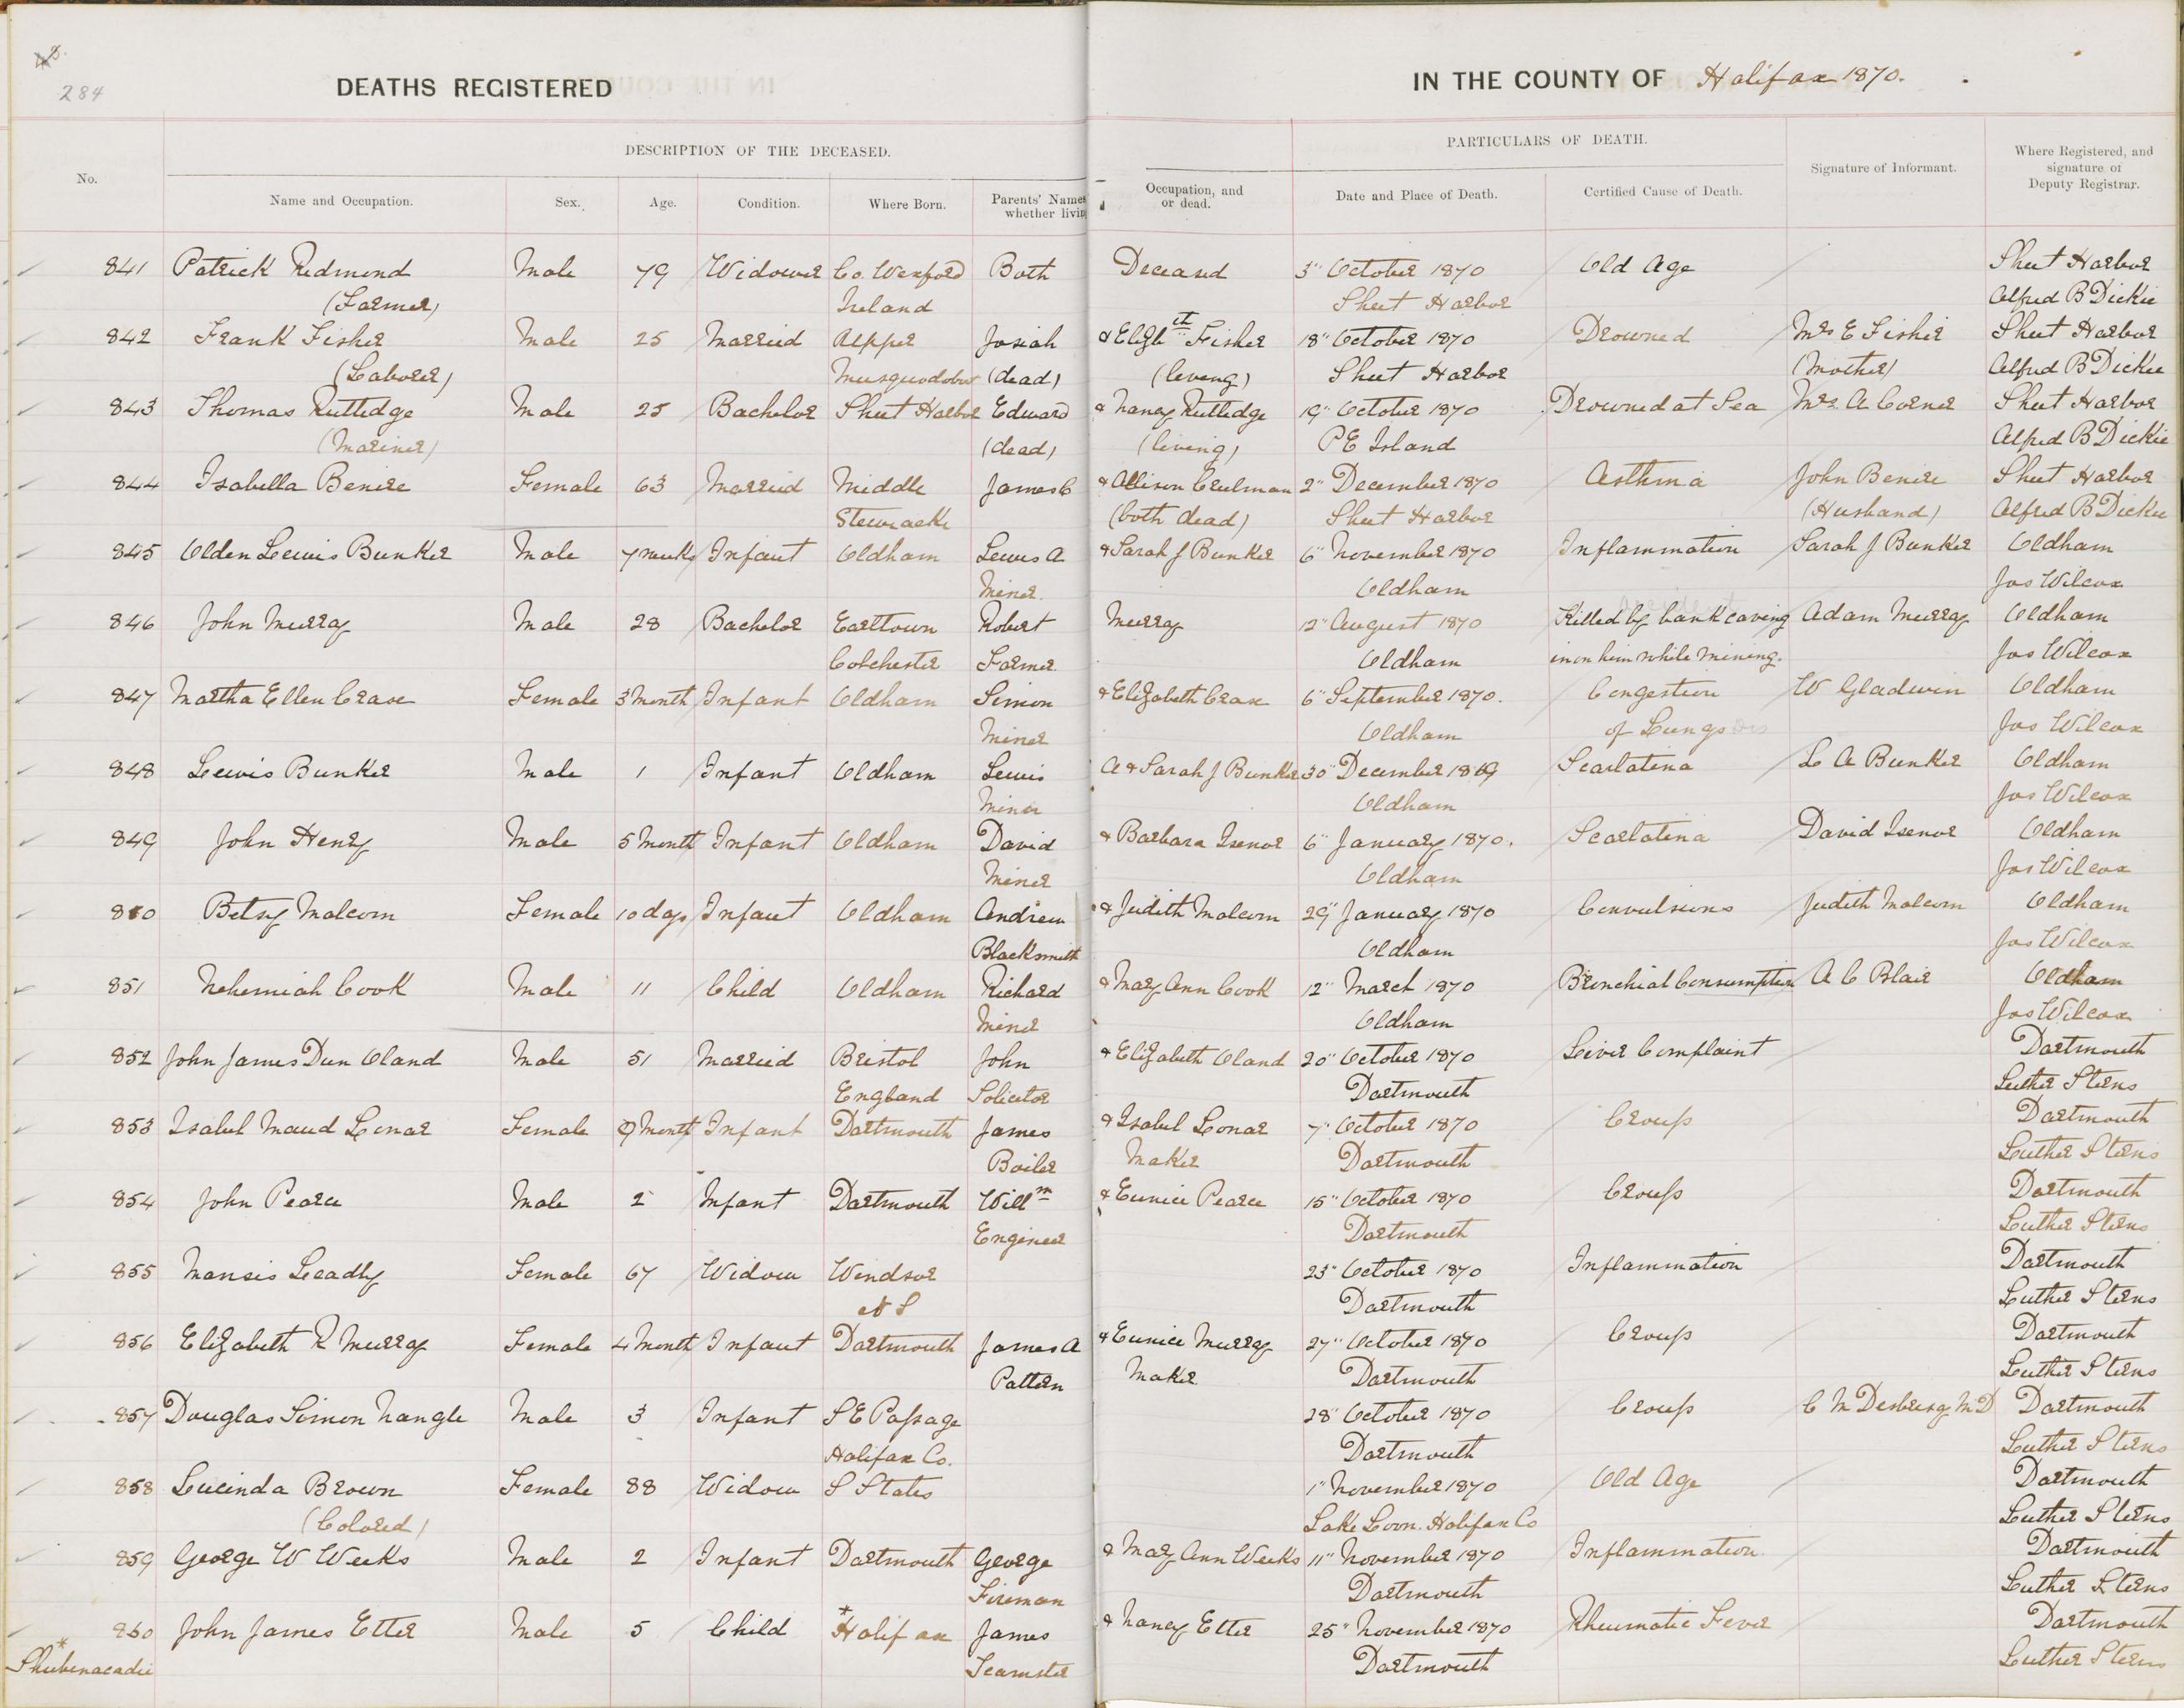 284
DEATHS REGISTERED IN THE COUNTY OF Halifax 1870.
DESCRIPTION OF THE DECEASED. PARTICULARS OF DEATH.
No. Name and Occupation. Sex. Age. Condition. Where Born. Parents' Names whether livin Occupation, and or dead. Date and Place of Death. Certified Cause of Death. Signature of Informant. Where Registered, and signature of Deputy Registrar.
841 Patrick Redmond Male 79 Widower Co. Wexford Both Deceased 3" October 1870 Old Age Sheet Harbor
(Farmer) Ireland Sheet Harbor Alfred B Dickie
842 Frank Fisher Male 25 Married Upper Josiah & Elizbth Fisher 18" October 1870 Drowned Mrs E Fisher Sheet Harbor
(Laborer) Musquodobot (dead) (leveng) Sheet Harbor (Mother) Alfred B Dickie
843 Thomas Rutledge Male 25 Bachelor Sheet Harbor Edward & Nancy Rutledge 19" October 1870 Drowned at Sea Mrs. A Corner Sheet Harbor
(Mariner) (dead) (living) P E Island Alfred B Dickie
844 Isabella Benire Female 63 Married Middle James C & Allison Crulman 2" December 1870 Asthma John Benire Sheet Harbor
Stewiacke (both dead) Sheet Harbor (Husband) Alfred B Dickie
845 Olden Lewis Bunker Male 7 weeks Infant Oldham Lewis A & Sarah J Bunker 6" November 1870 Inflammation Sarah J Bunker Oldham
Miner. Oldham Jas Wilcox
846 John Murray Male 28 Bachelor Earltown Robert Murray 12" August 1870 Killed by bank caving Adam Murray Oldham
Colchester Farmer Oldham in on him while mining. Jas Wilcox
847 Martha Ellen Crase Female 3 Month Infant Oldham Simon & Elizabeth Crase 6" September 1870. Congestion W Gladwin Oldham
Miner Oldham of Lungs Jas Wilcox
848 Lewis Bunker Male 1 Infant Oldham Lewis A & Sarah J Bunker 30" December 1869 Scarlatina L A Bunker Oldham
Miner Oldham Jas Wilcox
849 John Henry Male 5 Month Infant Oldham David & Barbara Isenor 6" January 1870. Scarlatina David Isenor Oldham
Miner Oldham Jas Wilcox
810 Betsy Malcom Female 10 days Infant Oldham Andrew & Judith Malcom 29" January 1870 Convulsions Judith Malcom Oldham
Blacksmith Oldham Jas Wilcox
851 Nehemiah Cook Male 11 Child Oldham Richard & Mary Ann Cook 12" March 1870 Bronchial Consumption A C Blair Oldham
Miner Oldham Jas Wilcox
852 John James Dun Oland Male 51 Married Bristol John & Elizabeth Oland 20" October 1870 Liver Complaint Dartmouth
England Solicitor Dartmouth Luther Sterns
853 Isabel Maud Lonar Female 9 Month Infant Dartmouth James & Isabel Lonar 7" October 1870 Croup Dartmouth
Boiler Maker Dartmouth Luther Sterns
854 John Pearce Male 2 Infant Dartmouth Willm & Eunice Pearce 15" October 1870 Croup Dartmouth
Engineer Dartmouth Luther Sterns
855 Mansis Leadly Female 67 Widow Windsor 23" October 1870 Inflammation Dartmouth
N S Dartmouth Luther Sterns
856 Elizabeth R Murray Female 4 Month Infant Dartmouth James A & Eunice Murray 27" October 1870 Croup Dartmouth
Pattern Maker Dartmouth Luther Sterns
857 Douglas Simon Nangle Male 3 Infant S E Passage 28" October 1870 Croup C M Desbrisay M D Dartmouth
Halifax Co. Dartmouth Luther Sterns
858 Lucinda Brown Female 88 Widow S States 1" November 1870 Old Age Dartmouth
(Colored) Lake Loon. Halifax Co Luther Sterns
859 George W Weeks Male 2 Infant Dartmouth George & Mary Ann Weeks 11" November 1870 Inflammation Dartmouth
Fireman Dartmouth Luther Sterns
860 John James Etter Male 5 Child *Halifax James & Nancy Etter 25" November 1870 Rheumatic Fever Dartmouth
*Shubenacadie Teamster Dartmouth Luther Sterns